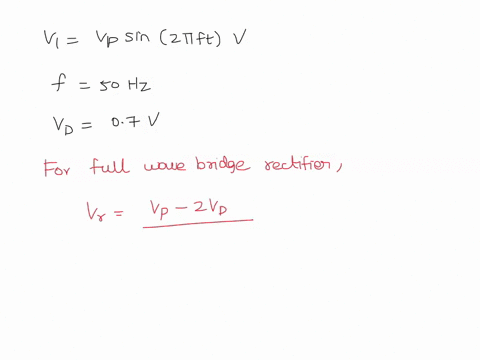 V₁ = Vp sin (2πft) V
f = 50 Hz
V_D = 0.7 V
For full wave bridge rectifier,
Vr = Vp - 2V_D